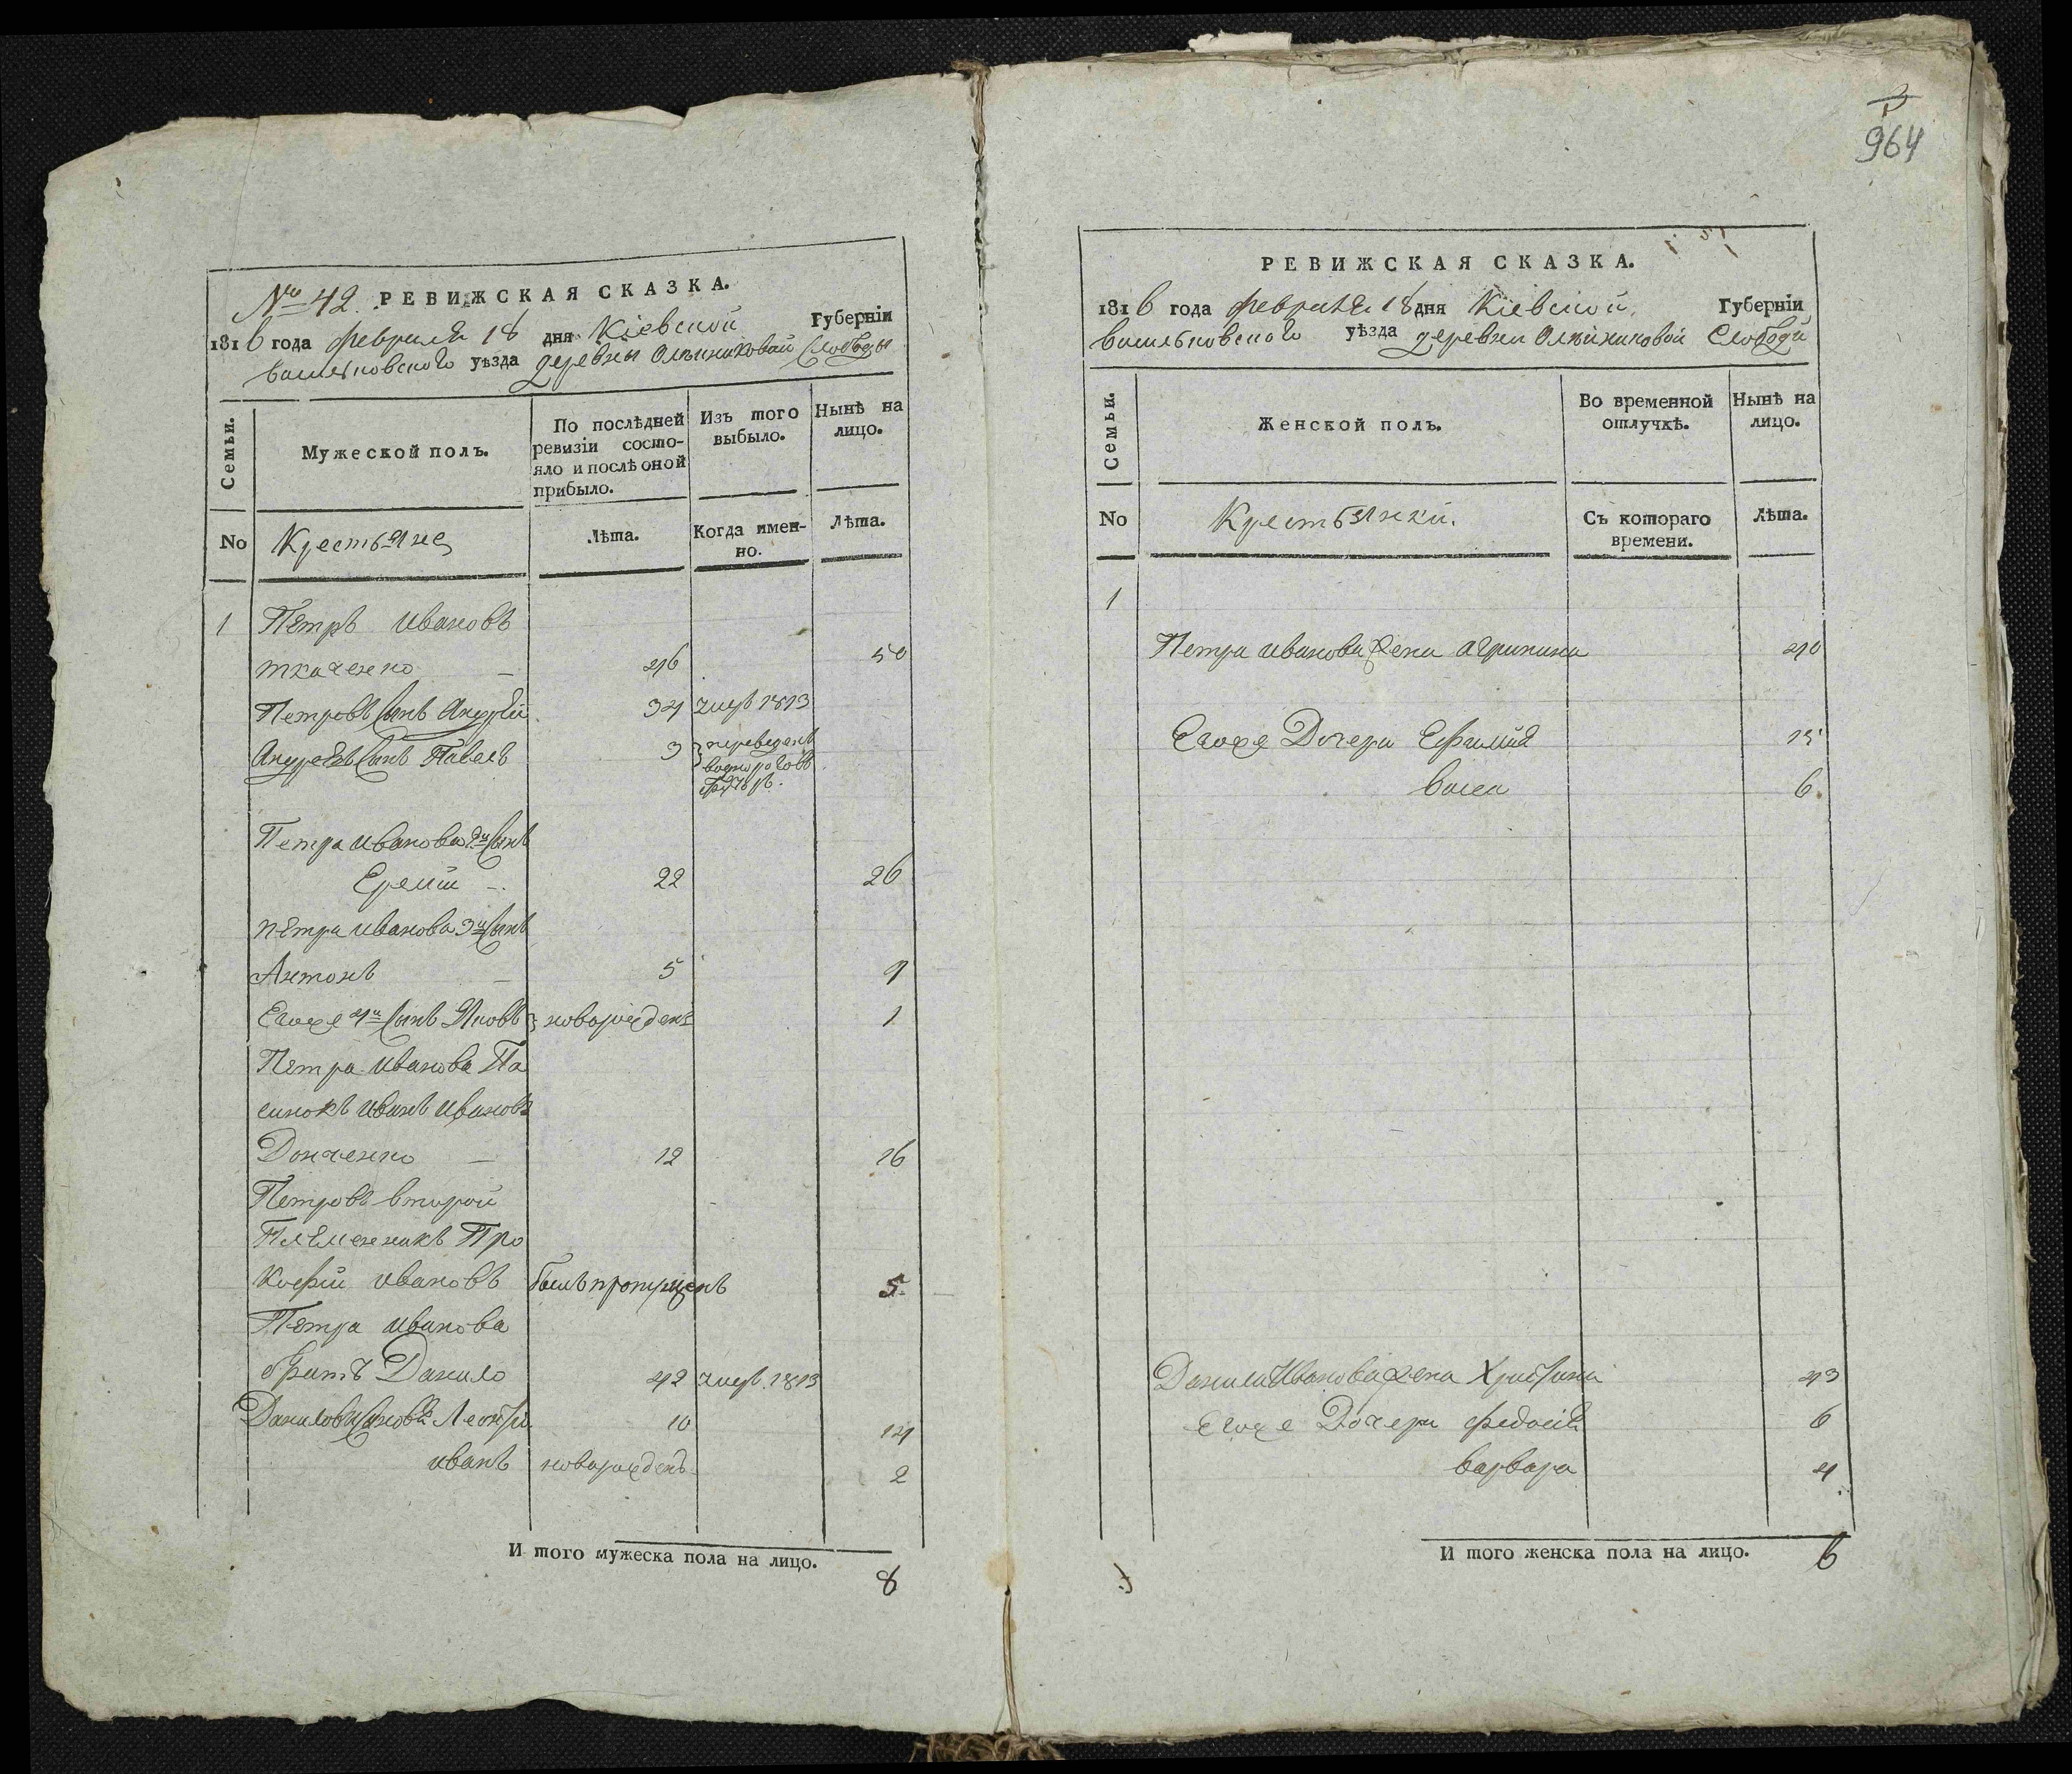 No 42. РЕВИЖСКАЯ СКАЗКА.
1816 года февраля 18 дня Кіевской Губерніи
васильковскаго уѣзда деревны Олѣиниковой Слободы
Семьи.
Мужеской полъ.
По послѣдней ревизіи состо-
яло и послѣ оной прибыло.
Изъ того выбыло.
Нынѣ на лицо.
No
Крестьяне
Лѣта.
Когда имен-
но.
Лѣта.
1 Петръ ивановъ
ткаченко — 46 50
Петровъ Сынъ Андрѣй 34 умеръ 1813
Андреевъ Сынъ Павелъ 3 переведенъ
Петра иванова 2й Сынъ
Еремѣй — 22 26
петра иванова 3й Сынъ
Антонъ — 5 9
Егоже 4й Сынъ Яковъ новорожденъ 1
Петра иванова Па
синокъ иванъ ивановъ
Донченко — 12 16
Петровъ второй
Племенникъ Про
кофій ивановъ былъ пропущенъ 5
Петра иванова
братъ Данило 42 умеръ 1813
Даниловы Сыновья Леонтій 10 14
иванъ новорожденъ 2
И того мужеска пола на лицо.
8
964
РЕВИЖСКАЯ СКАЗКА.
1816 года февраля 18 дня Кіевской Губерніи
васильковского уѣзда деревни Олѣиниковой Слободи
Семьи.
Женской полъ.
Во временной
отлучкѣ.
Нынѣ на
лицо.
No
Крестьянки.
Съ котораго
времени.
Лѣта.
1
Петра иванова жена агрипина 40
Егоже Дочери Ефимия 15
васса 6
Данила Иванова жена Христина 43
Егоже Дочери федосія 6
варвара 4
И того женска пола на лицо. 6